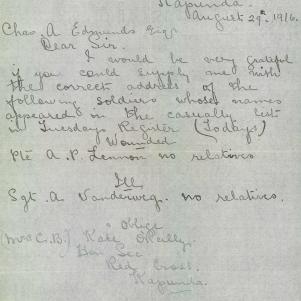 Kapunda.
August 29th. 1916.
Chas. A Edmunds Esq.
Dear Sir.
I would be very grateful
if you could supply me with
the correct address of the
following soldiers whose names
appeared in the casualty list
in Tuesdays Register (Todays)
Wounded
Pte A. P. Lennon no relatives
Ill
Sgt. A Vanderweg. no relatives.
Oblige
(Mrs C.B.) Kate O'Reilly.
Hon Sec
Red Cross.
Kapunda.